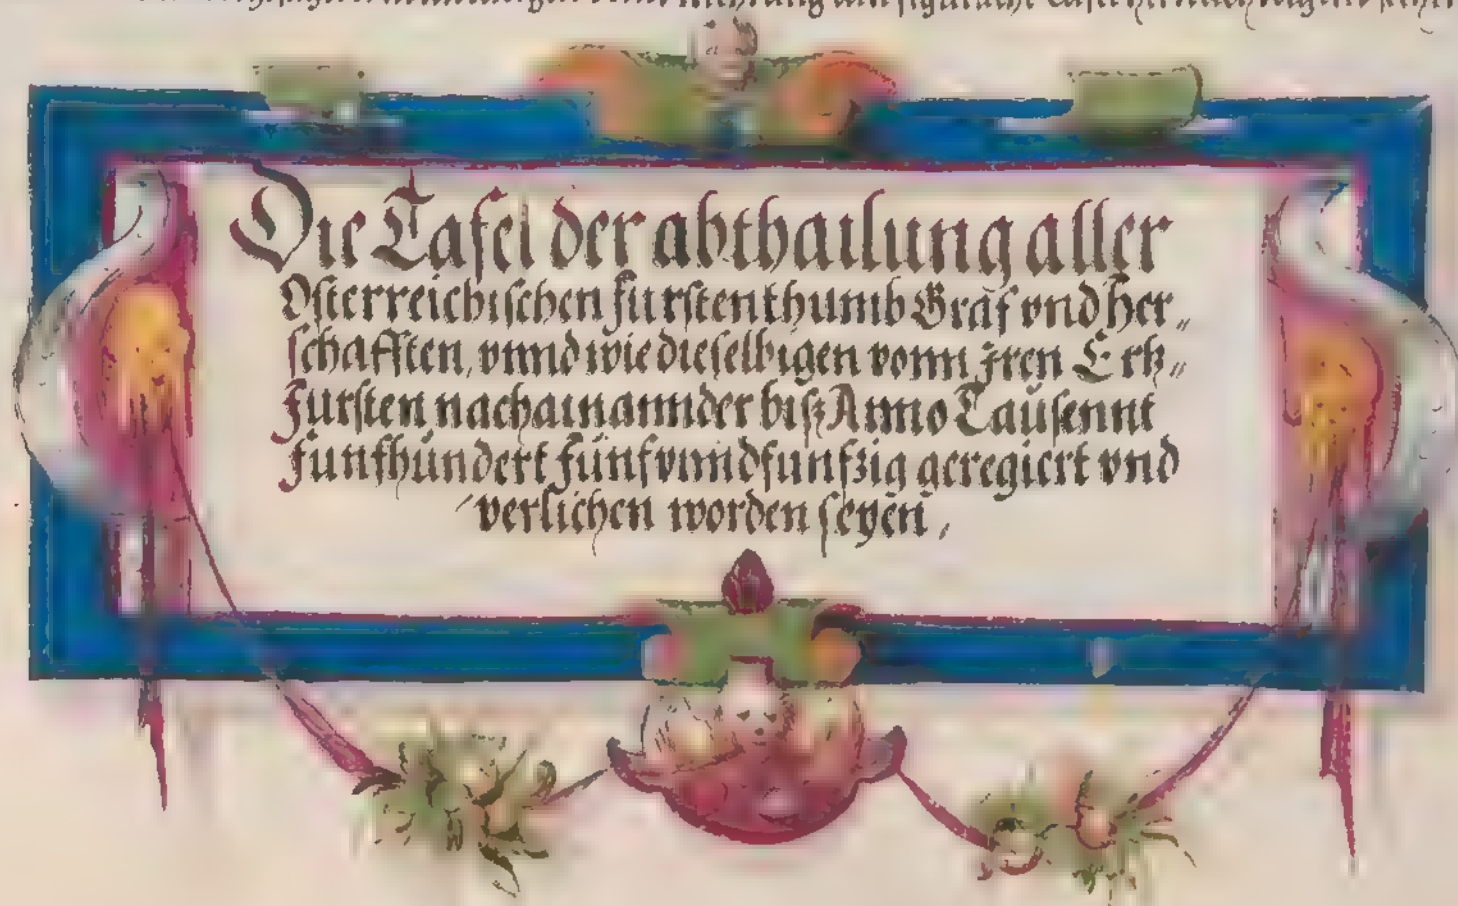 Die Tafel der abthailung aller
Osterreichischen fürstenthumb Graf vnd her„
schafften, vnnd wie dieselbigen vonn Jren Ertz„
Fürsten nachainannder bisz Anno Taůsennt
Funfhůndert fünfvnndfunfzig geregiert vnd
verlichen worden seyen,